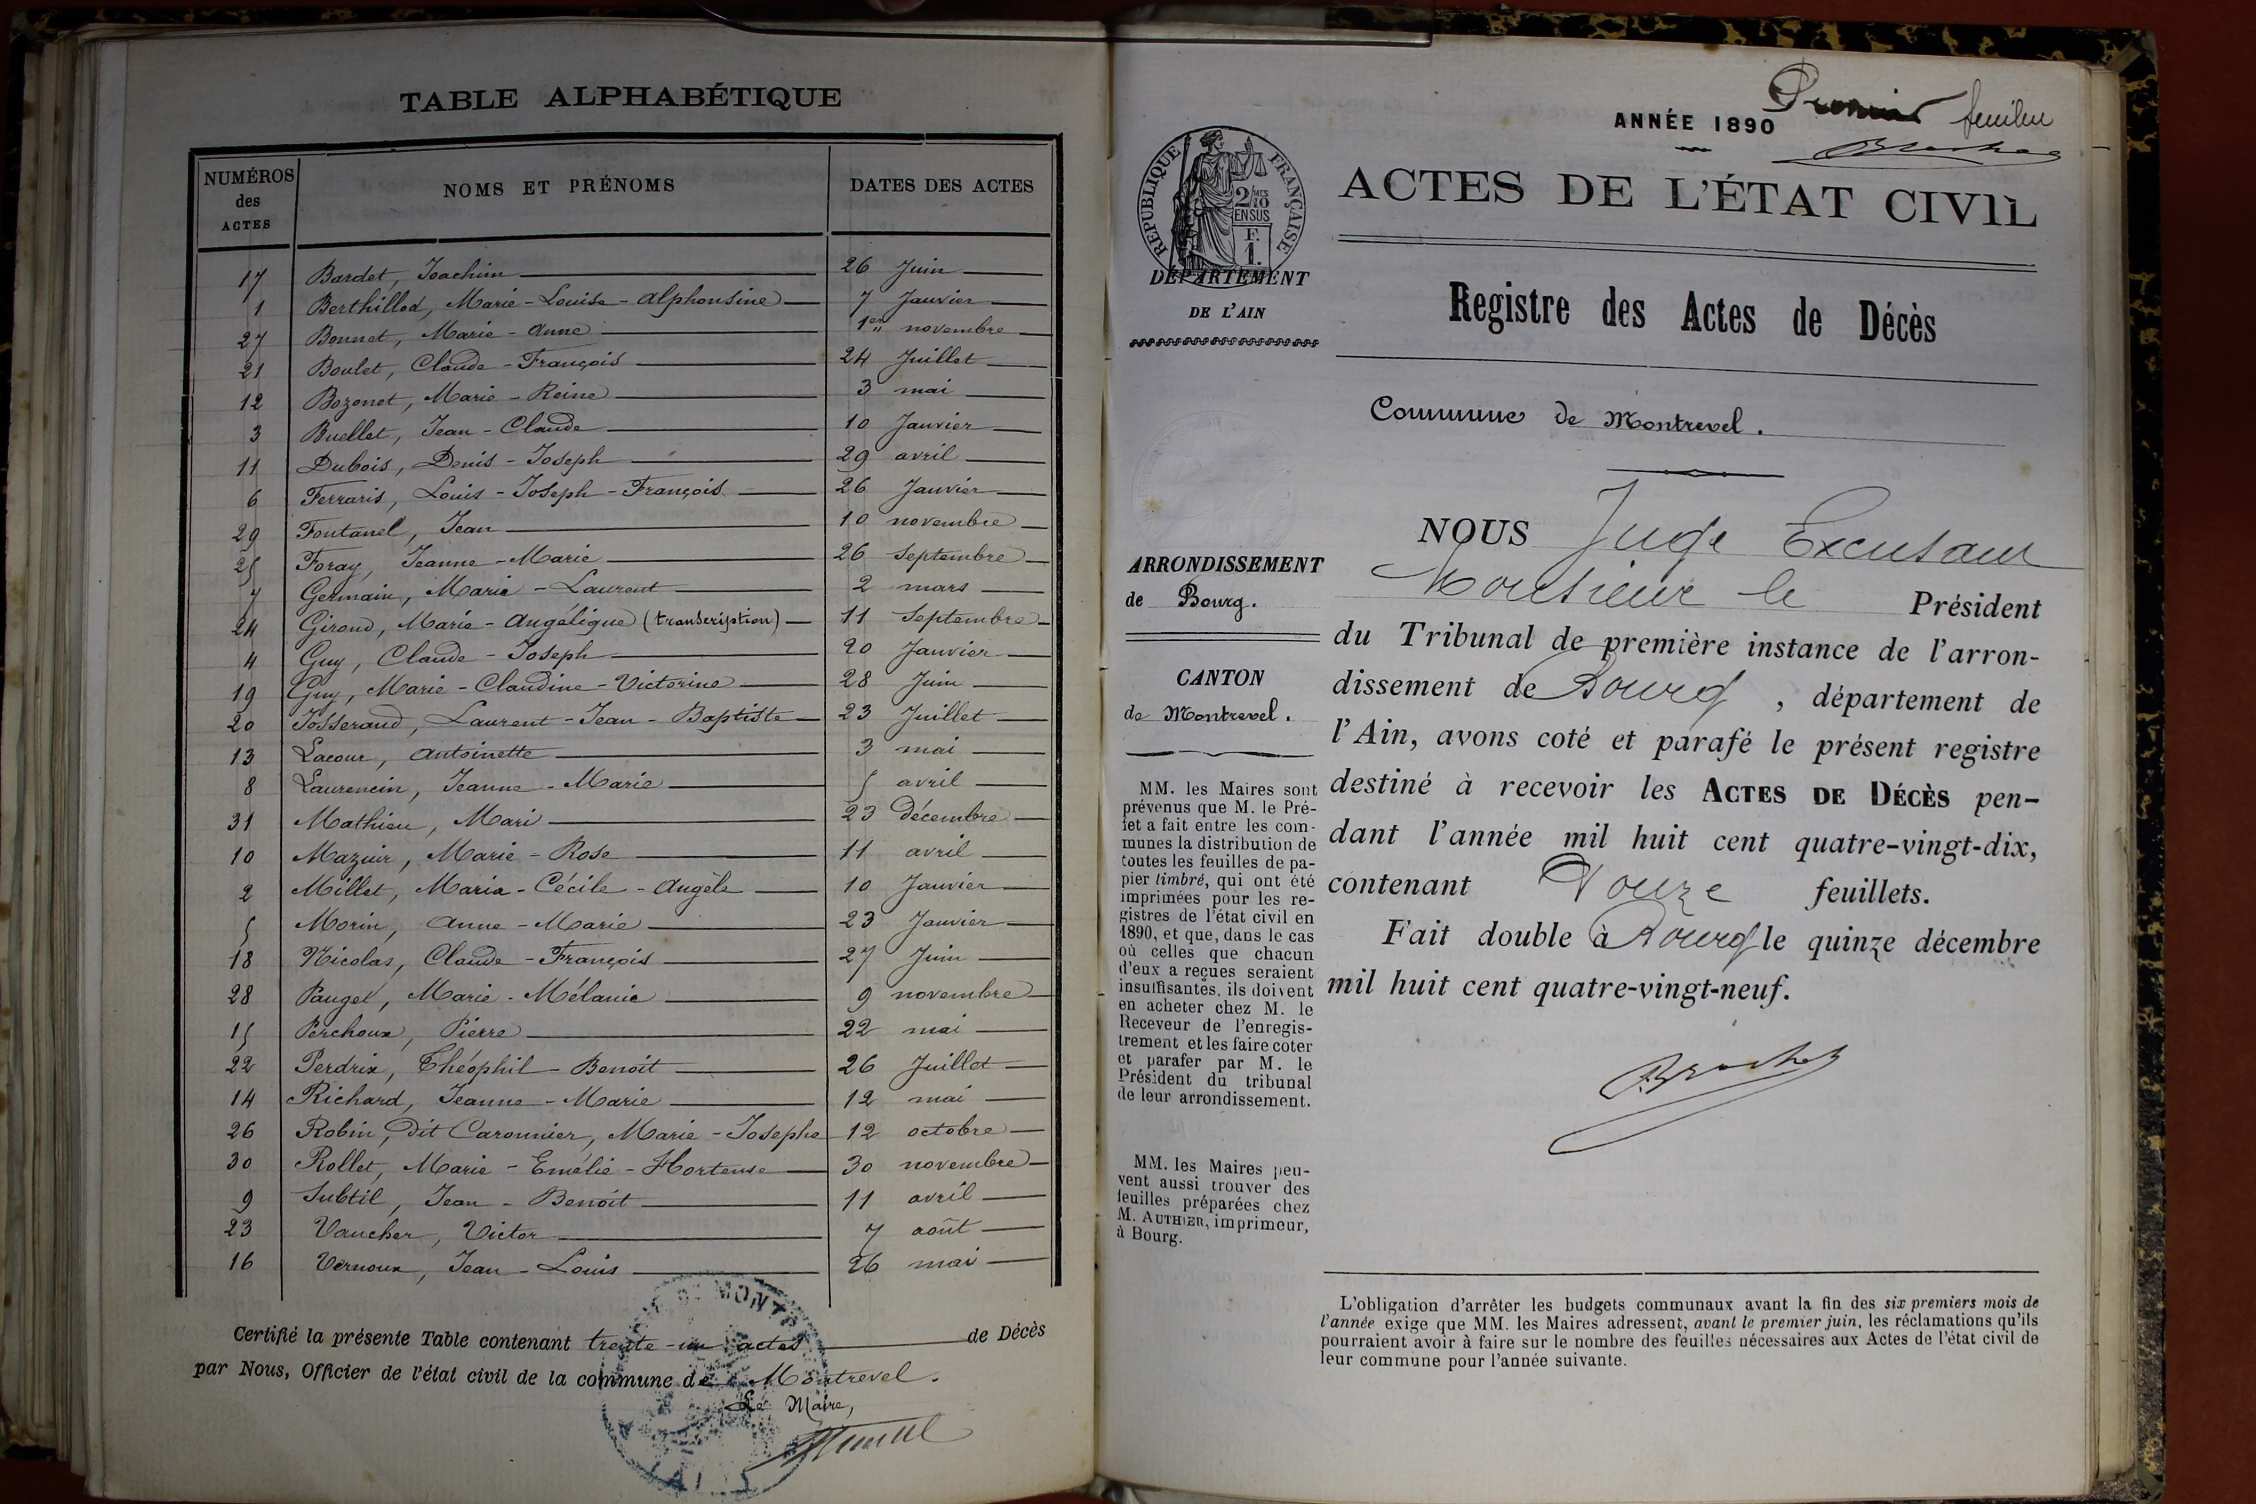 TABLE ALPHABÉTIQUE
NUMÉROS des ACTES NOMS ET PRÉNOMS DATES DES ACTES
17 Bardet, Joachim 26 Juin
1 Berthillod, Marie-Louise-Alphonsine 7 Janvier
27 Bonnet, Marie-Anne 1er novembre
21 Boulet, Claude-François 24 Juillet
12 Bozonet, Marie-Reine 3 mai
3 Buellet, Jean-Claude 10 Janvier
11 Dubois, Denis-Joseph 29 avril
6 Ferraris, Louis-Joseph-François 26 Janvier
29 Fontanel, Jean 10 novembre
25 Foray, Jeanne-Marie 26 Septembre
7 Germain, Marie-Laurent 2 mars
24 Giroud, Marie-Angélique (transcription) 11 Septembre
4 Guy, Claude-Joseph 20 Janvier
19 Guy, Marie-Claudine-Victorine 28 Juin
20 Josserand, Laurent-Jean-Baptiste 23 Juillet
13 Lacour, Antoinette 3 mai
8 Laurencin, Jeanne-Marie 5 avril
31 Mathieu, Mari 23 Décembre
10 Mazuir, Marie-Rose 11 avril
2 Millet, Maria-Cécile-Angèle 10 Janvier
5 Morin, Anne-Marie 23 Janvier
18 Nicolas, Claude-François 27 Juin
28 Pauget, Marie-Mélanie 9 novembre
15 Perchoux, Pierre 22 mai
22 Perdrix, Théophil-Benoît 26 Juillet
14 Richard, Jeanne-Marie 12 mai
26 Robin, Dit Caronnier, Marie-Josephe 12 octobre
30 Rollet, Marie-Emélie-Hortense 30 novembre
9 Subtil, Jean-Benoît 11 avril
23 Vaucher, Victor 7 août
16 Vernoux, Jean-Louis 26 mai
Certifié la présente Table contenant trente-un actes de Décès
par Nous, Officier de l'état civil de la commune de Montrevel.
Le Maire,
ANNÉE 1890
Premier feuillet
RÉPUBLIQUE FRANÇAISE
2/10 MES
EN SUS
F.
1.
ACTES DE L'ÉTAT CIVIL
DÉPARTEMENT
DE L'AIN
Registre des Actes de Décès
Commune de Montrevel.
ARRONDISSEMENT
de Bourg.
CANTON
de Montrevel.
MM. les Maires sont
prévenus que M. le Pré-
fet a fait entre les com-
munes la distribution de
toutes les feuilles de pa-
pier timbré, qui ont été
imprimées pour les re-
gistres de l'état civil en
1890, et que, dans le cas
où celles que chacun
d'eux a reçues seraient
insuffisantes, ils doivent
en acheter chez M. le
Receveur de l'enregis-
trement et les faire coter
et parafer par M. le
Président du tribunal
de leur arrondissement.
MM. les Maires peu-
vent aussi trouver des
feuilles préparées chez
M. AUTHIER, imprimeur,
à Bourg.
NOUS Juge Excusant
Monsieur le Président
du Tribunal de première instance de l'arron-
dissement de Bourg, département de
l'Ain, avons coté et parafé le présent registre
destiné à recevoir les ACTES DE DÉCÈS pen-
dant l'année mil huit cent quatre-vingt-dix,
contenant Douze feuillets.
Fait double à Bourg le quinze décembre
mil huit cent quatre-vingt-neuf.
L'obligation d'arrêter les budgets communaux avant la fin des six premiers mois de
l'année exige que MM. les Maires adressent, avant le premier juin, les réclamations qu'ils
pourraient avoir à faire sur le nombre des feuilles nécessaires aux Actes de l'état civil de
leur commune pour l'année suivante.